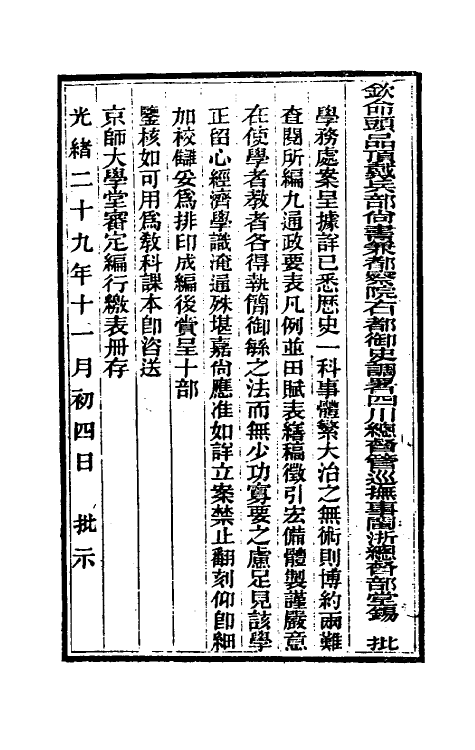 欽命頭品頂戴兵部尚書兼都察院右都御史調署四川總督管巡撫事閩浙總督部堂錫　批
學務處案呈據詳已悉歷史一科事體繁大治之無術則博約兩難
查閱所編九通政要表凡例並田賦表繕稿徵引宏備體製謹嚴意
在使學者教者各得執簡御緐之法而無少功寡要之慮足見該學
正留心經濟學識淹通殊堪嘉尚應准如詳立案禁止翻刻仰卽細
加校讎妥爲排印成編後賫呈十部
鑒核如可用爲教科課本卽咨送
京師大學堂審定編行繳表册存
光緒二十九年十一月初四日　批示